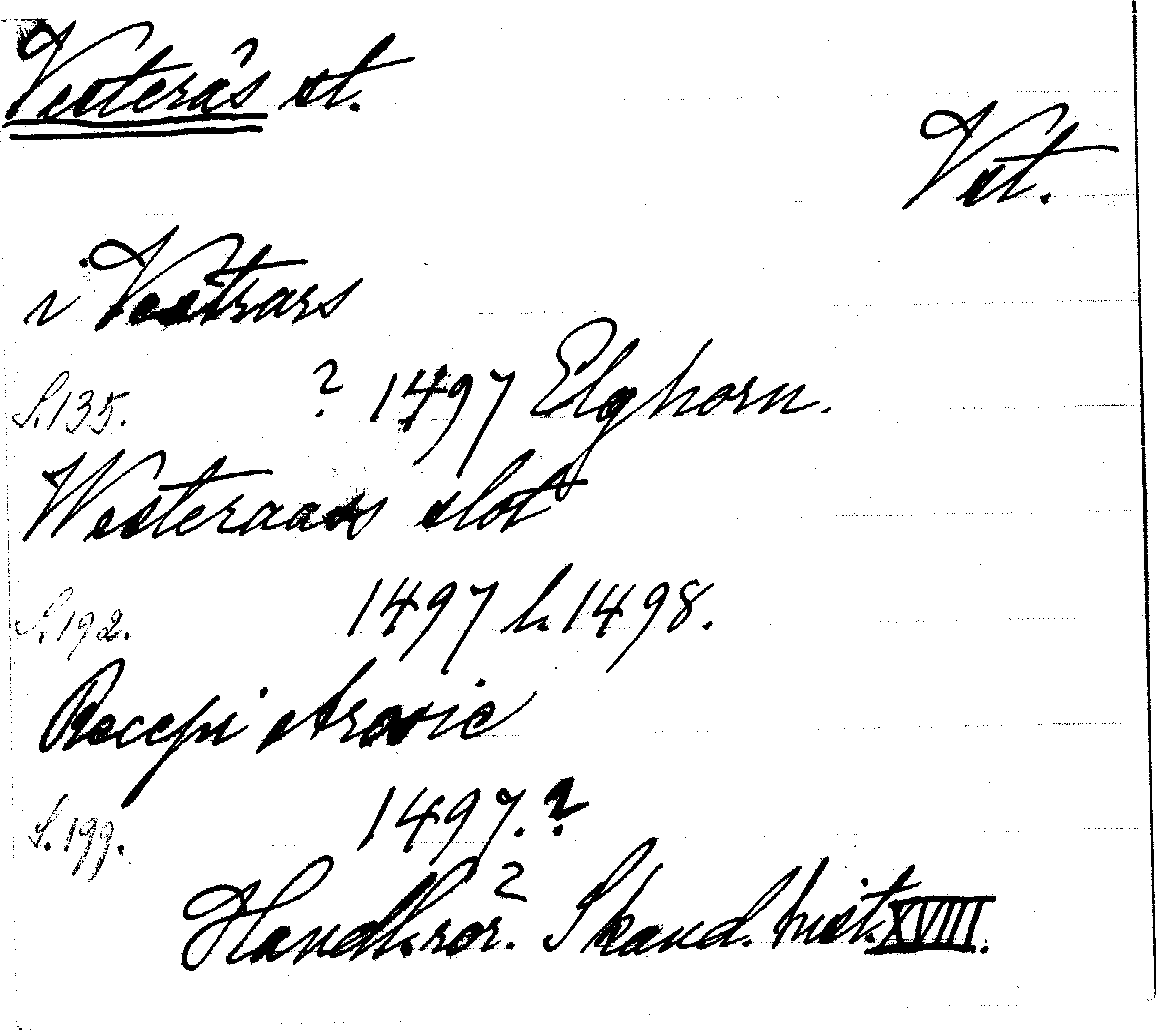 Vesterås st.
Vst.
i Vestrars
S. 135. ? 1497 Elghorn.
Westeraars slot
S. 192. 1497 l. 1498.
Recepi
S. 199. 1497. ?
Handl. rör. Skand. hist. XVIII.